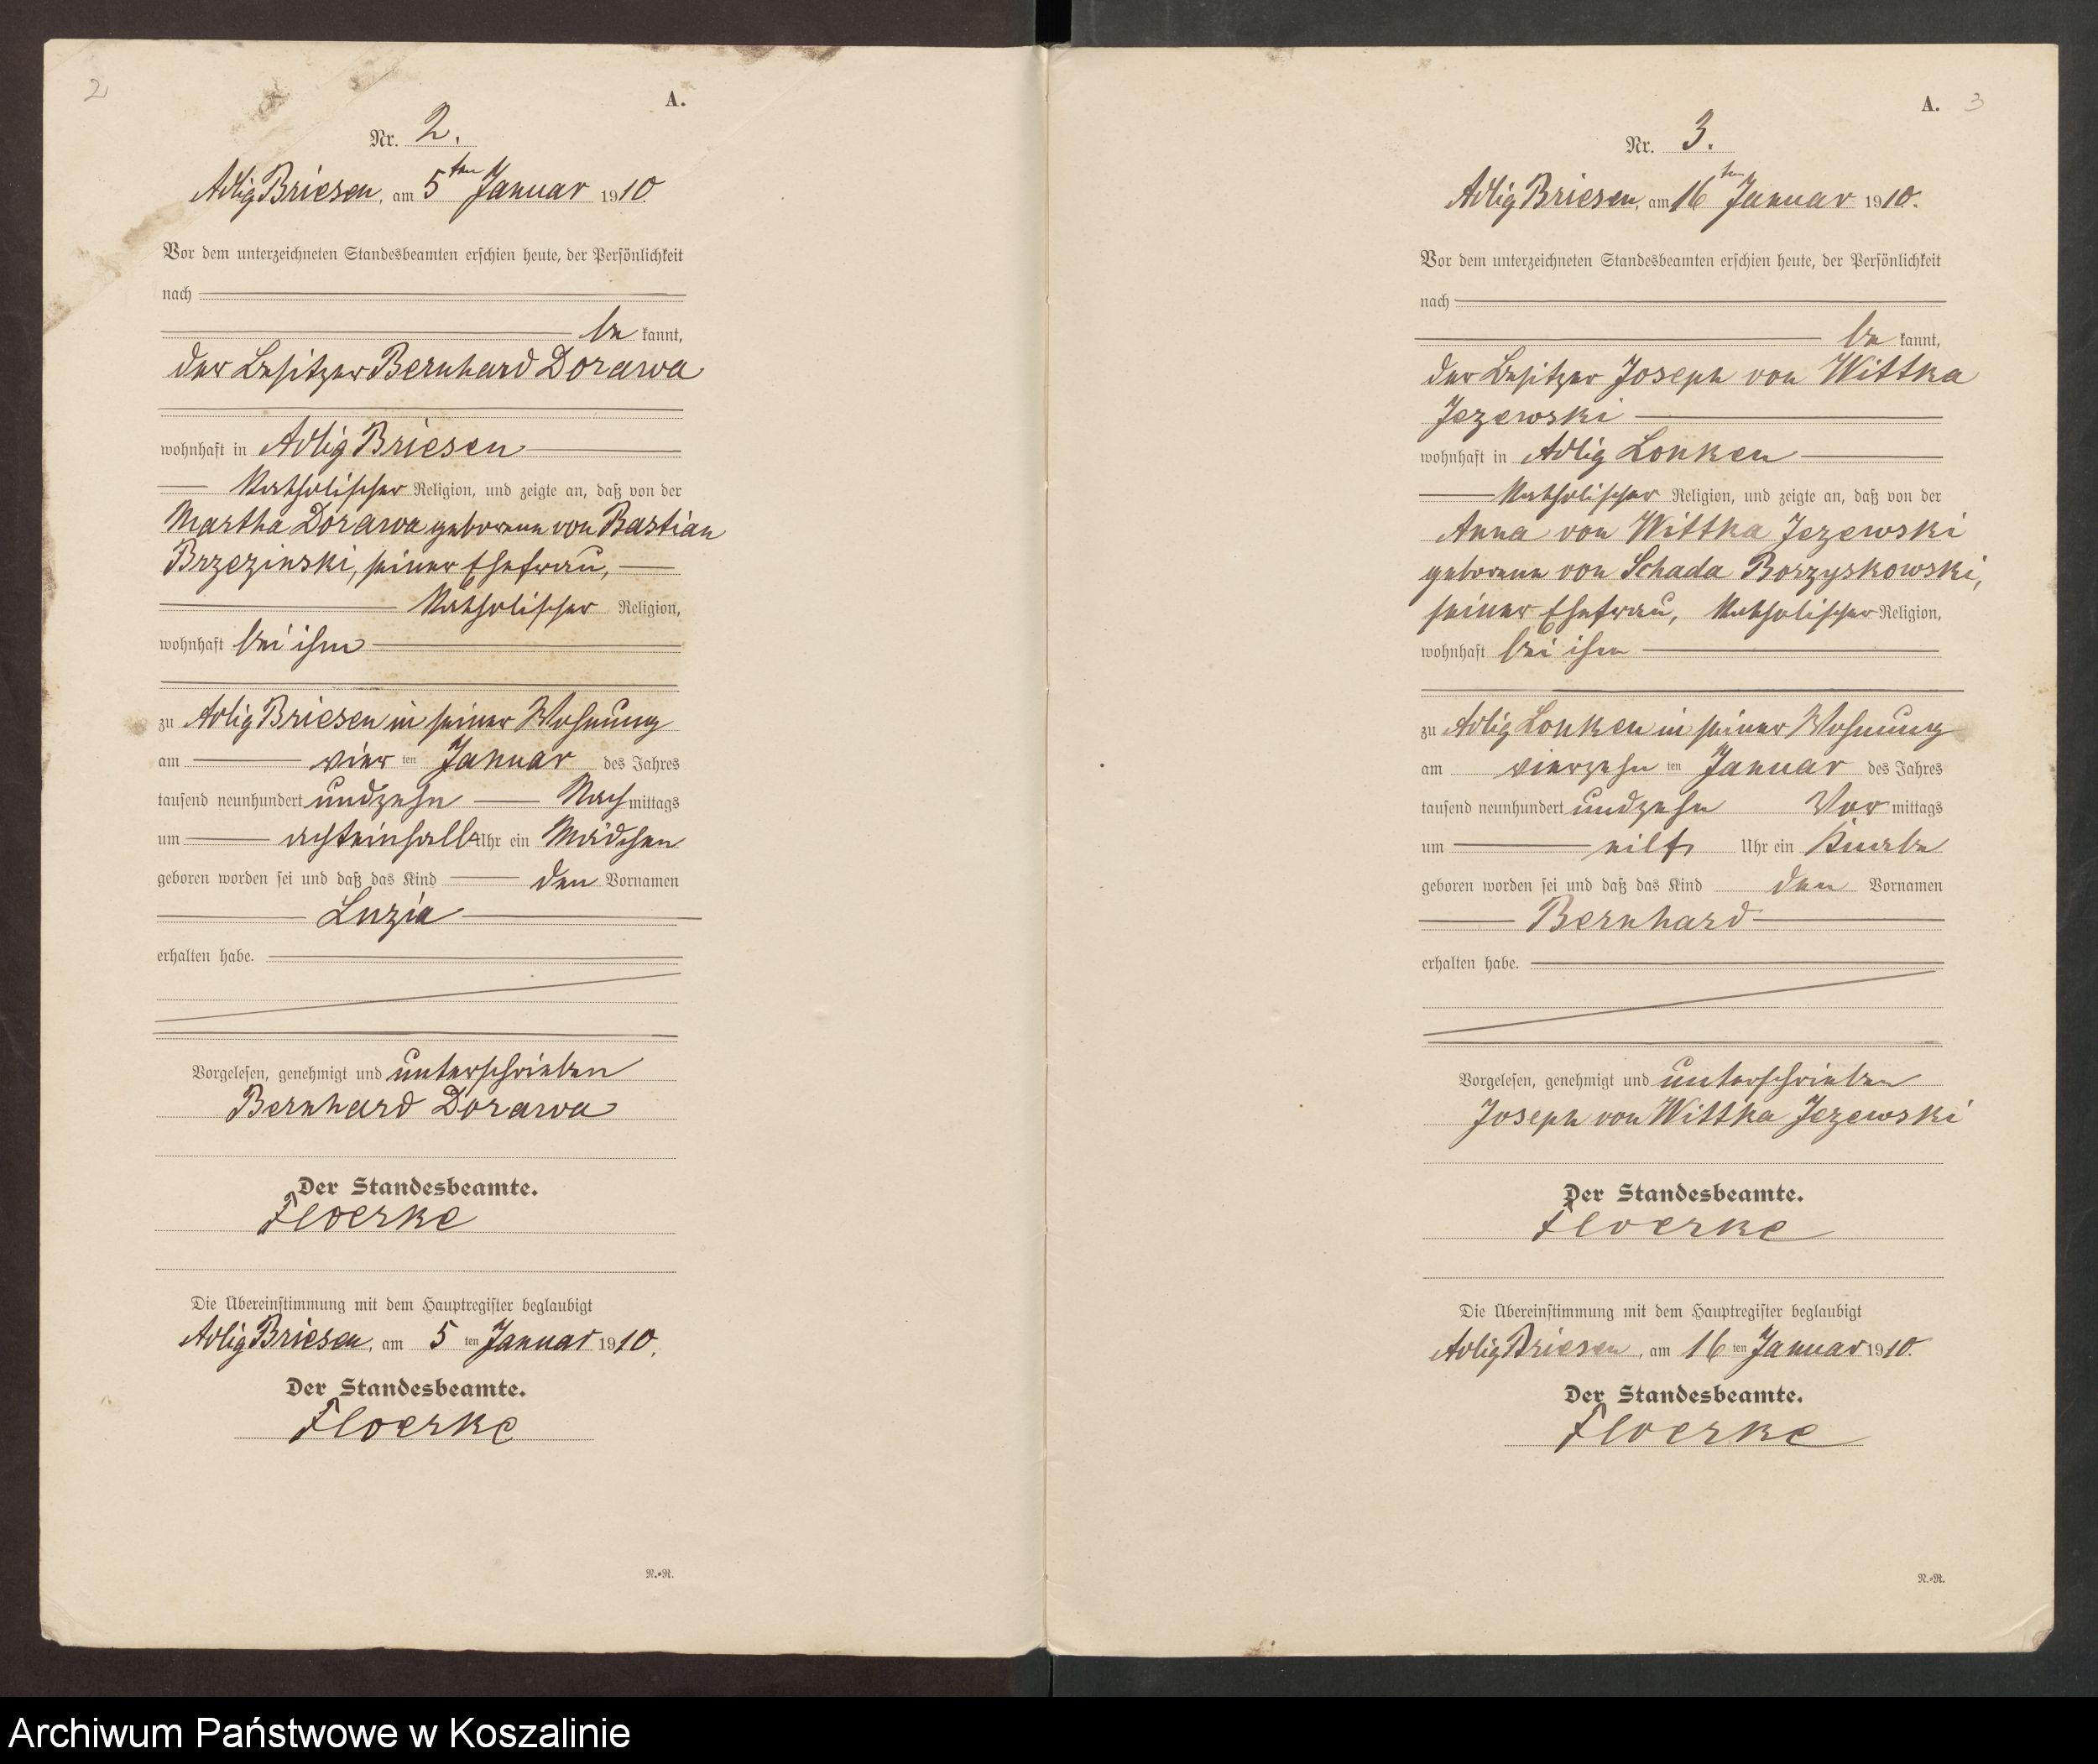 2
A.
Nr. 2.
Adlig Briesen, am 5ten Januar 1910.
Vor dem unterzeichneten Standesbeamten erschien heute, der Persönlichkeit
nach
be kannt,
der Besitzer Bernhard Dorawa
wohnhaft in Adlig Briesen
katholischer Religion, und zeigte an, daß von der
Martha Dorawa geborene von Bastian
Brzezinski, seiner Ehefrau,
katholischer Religion,
wohnhaft bei ihm
zu Adlig Briesen in seiner Wohnung
am vier ten Januar des Jahres
tausend neunhundert undzehn Nach mittags
um achteinhalb Uhr ein Mädchen
geboren worden sei und daß das Kind den Vornamen
Luzia
erhalten habe.
Vorgelesen, genehmigt und unterschrieben
Bernhard Dorawa
Der Standesbeamte.
Floerke
Die Übereinstimmung mit dem Hauptregister beglaubigt
Adlig Briesen, am 5 ten Januar 1910.
Der Standesbeamte.
Floerke
N.-R.
A. 3
Nr. 3.
Adlig Briesen, am 16ten Januar 1910.
Vor dem unterzeichneten Standesbeamten erschien heute, der Persönlichkeit
nach
be kannt,
der Besitzer Joseph von Wittka
Jezewski
wohnhaft in Adlig Lonken
katholischer Religion, und zeigte an, daß von der
Anna von Wittka Jezewski
geborene von Schada Borzyskowski,
seiner Ehefrau, katholischer Religion,
wohnhaft bei ihm
zu Adlig Lonken in seiner Wohnung
am vierzehn ten Januar des Jahres
tausend neunhundert undzehn Vor mittags
um eilf Uhr ein Knabe
geboren worden sei und daß das Kind den Vornamen
Bernhard
erhalten habe.
Vorgelesen, genehmigt und unterschrieben
Joseph von Wittka Jezewski
Der Standesbeamte.
Floerke
Die Übereinstimmung mit dem Hauptregister beglaubigt
Adlig Briesen, am 16 ten Januar 1910.
Der Standesbeamte.
Floerke
N.-R.
Archiwum Państwowe w Koszalinie